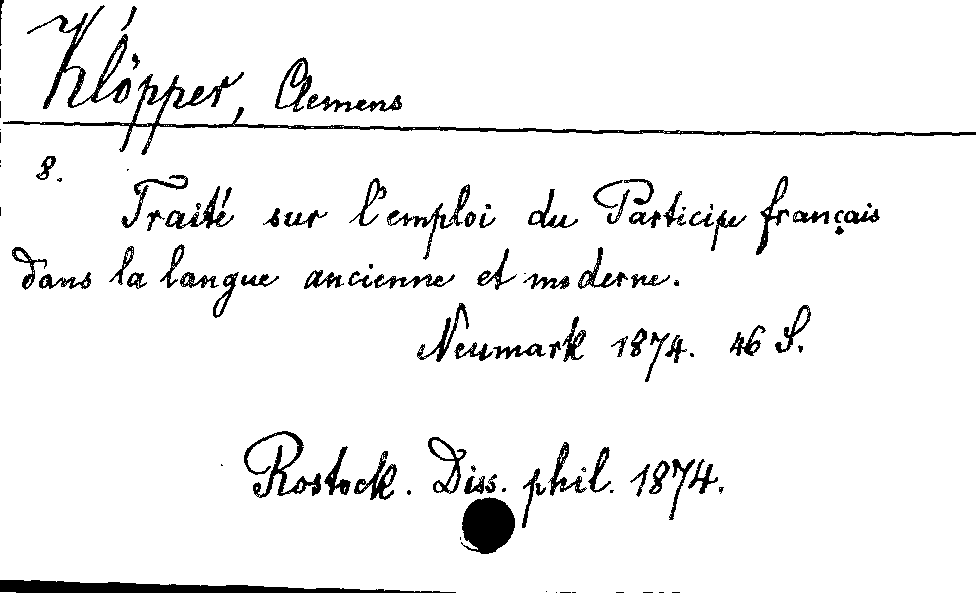 Klöpper, Clemens
8.
Traité sur l'emploi du Participe français
dans la langue ancienne et moderne.
Neumark 1874. 46 S.
Rostock. Diss. phil. 1874.